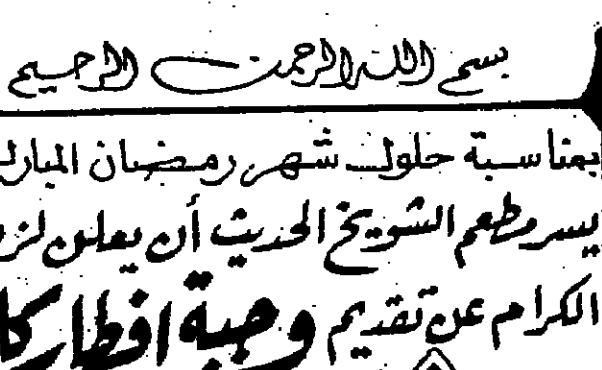 بسم الله الرحمن الرحيم
بمناسبة حلول شهر رمضان المبارك
يسر مطعم الشويخ الحديث أن يعلن
الكرام عن تقديم وجبة افطار